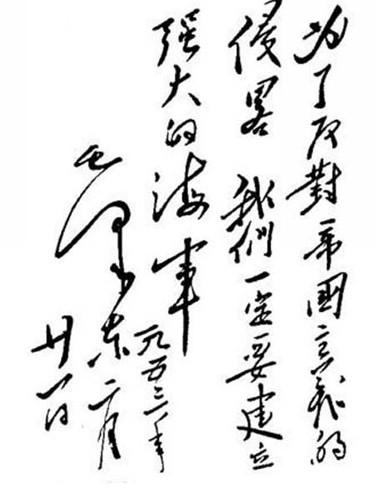 为了反對帝國主義的
侵畧 我們一定要建立
強大的海軍
一九五三年
毛澤东 二月
廿一日